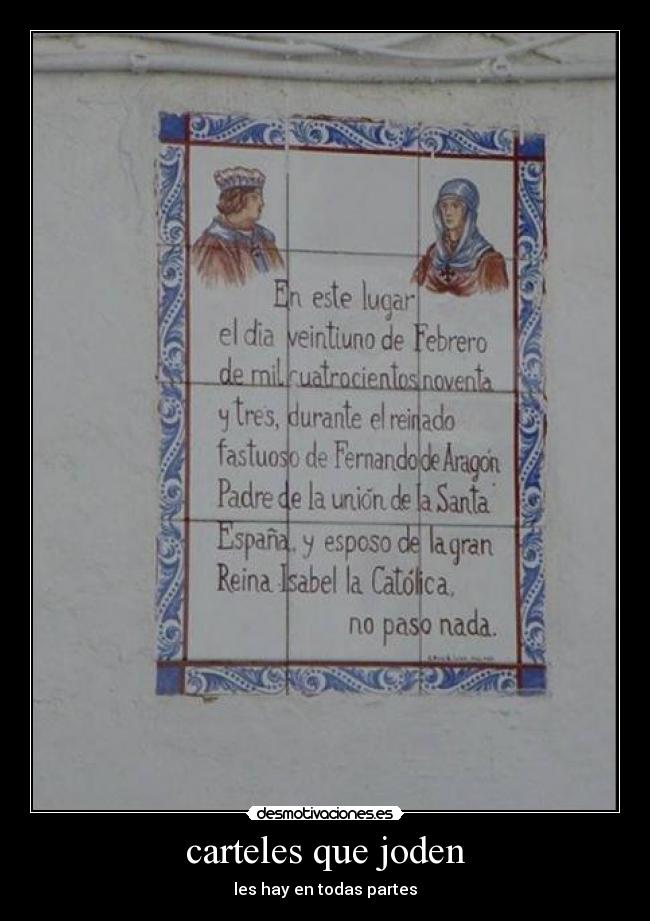 En este lugar
el dia veintiuno de Febrero
de mil cuatrocientos noventa
y tres, durante el reinado
fastuoso de Fernando de Aragón
Padre de la unión de la Santa
España, y esposo de la gran
Reina Isabel la Católica,
no paso nada.
desmotivaciones.es
carteles que joden
les hay en todas partes